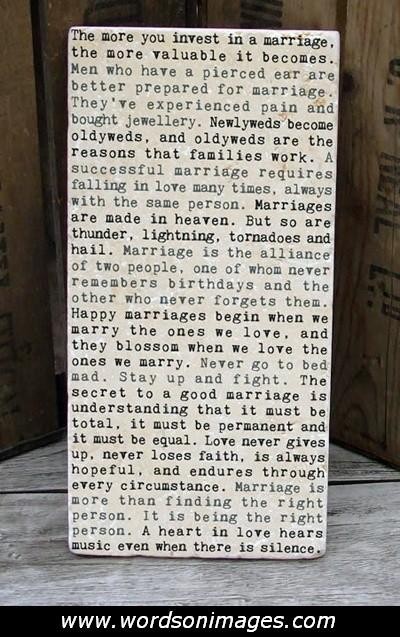 The more you invest in a marriage,
the more valuable it becomes.
Men who have a pierced ear are
better prepared for marriage.
They've experienced pain and
bought jewellery. Newlyweds become
oldyweds, and oldyweds are the
reasons that families work. A
successful marriage requires
falling in love many times, always
with the same person. Marriages
are made in heaven. But so are
thunder, lightning, tornadoes and
hail. Marriage is the alliance
of two people, one of whom never
remembers birthdays and the
other who never forgets them.
Happy marriages begin when we
marry the ones we love, and
they blossom when we love the
ones we marry. Never go to bed
mad. Stay up and fight. The
secret to a good marriage is
understanding that it must be
total, it must be permanent and
it must be equal. Love never gives
up, never loses faith, is always
hopeful, and endures through
every circumstance. Marriage is
more than finding the right
person. It is being the right
person. A heart in love hears
music even when there is silence.
www.wordsonimages.com